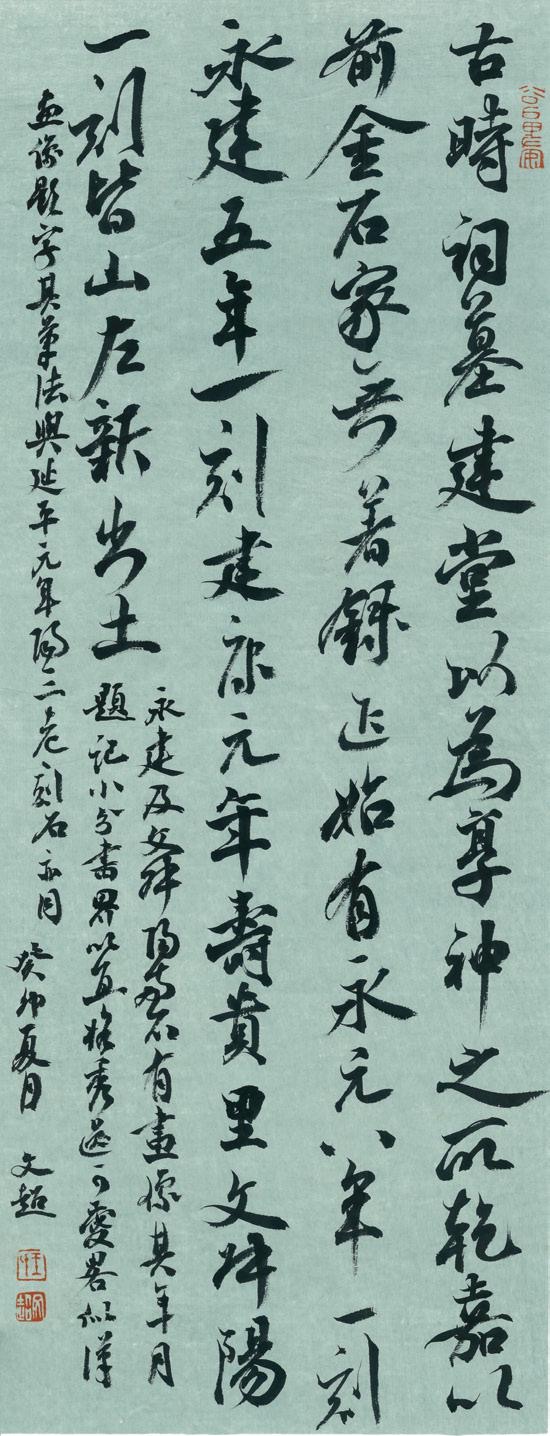 古時祠墓建堂以為享神之所乾嘉以
前金石家無著錄近始有永元八年一刻
永建五年一刻建康元年壽貴里文叔陽
一刻皆山左新出土
永建及文叔陽兩石有畫像其年月
題記小分書界以直格秀逸可愛畧似漢
畫像題字其筆法與延平元年陽三老刻石亦同
癸卯夏月 文超